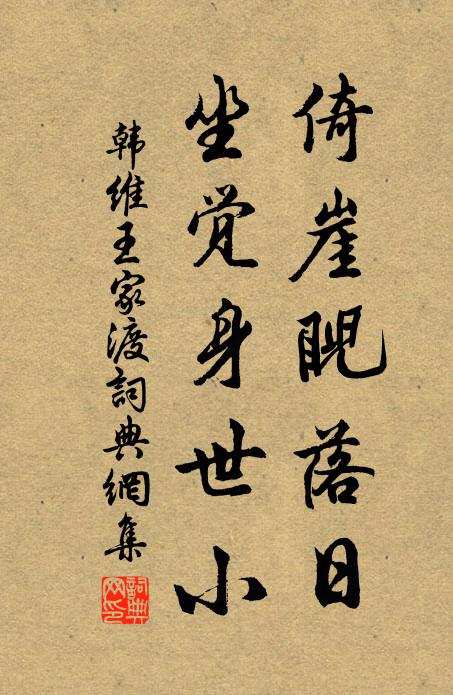 倚崖睨落日
坐觉身世小
韩维王家渡詞典網集
詞典网印